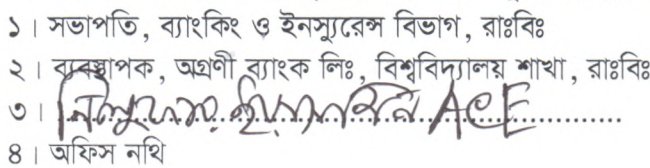 ১। সভাপতি, ব্যাংকিং ও ইনস্যুরেন্স বিভাগ, রাঃবিঃ
২। ব্যবস্থাপক, অগ্রণী ব্যাংক লিঃ, বিশ্ববিদ্যালয় শাখা, রাঃবিঃ
৩। নিলুফার ইয়াসমিন ACE
৪। অফিস নথি